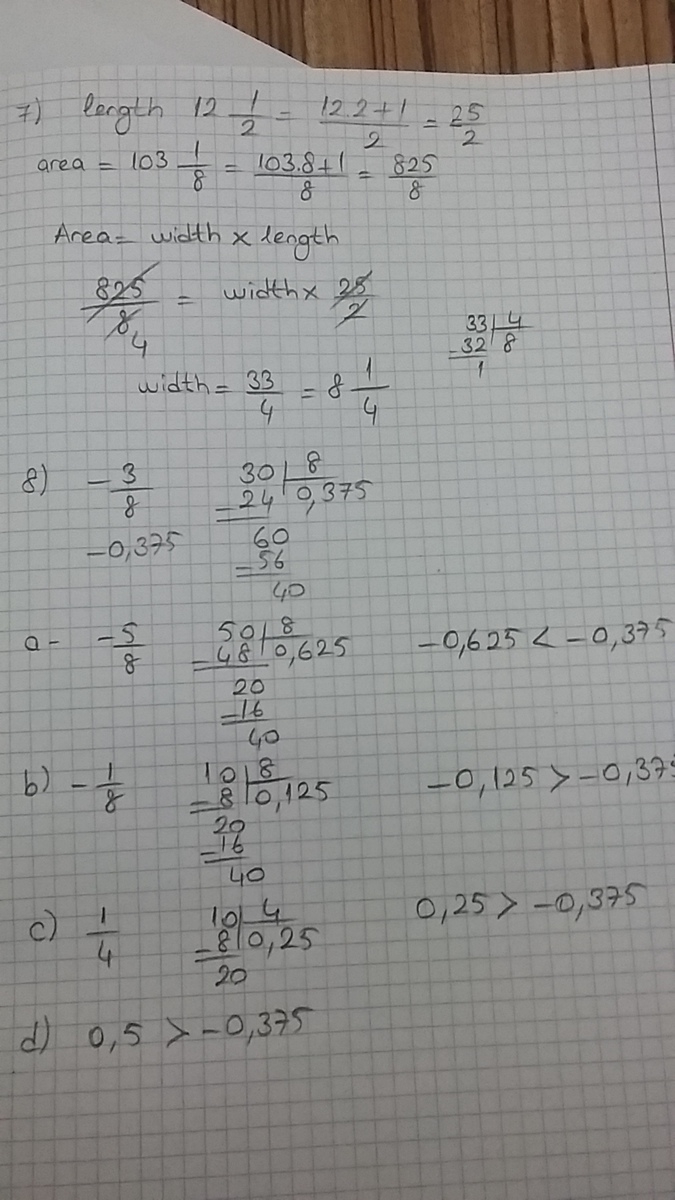 7) length 12 1/2 = 12.2+1/2 = 25/2
area = 103 1/8 = 103.8+1/8 = 825/8
Area = width x length
825/8 4 = width x 25/2
33 4
-32 8
1
width = 33/4 = 8 1/4
8) -3/8 30 8
-24 0,375
-0,375 60
-56
40
a- -5/8 50 8 -0,625 < -0,375
-48 0,625
20
-16
40
b) -1/8 10 8 -0,125 > -0,375
-8 0,125
20
-16
40
c) 1/4 10 4 0,25 > -0,375
-8 0,25
20
d) 0,5 > -0,375